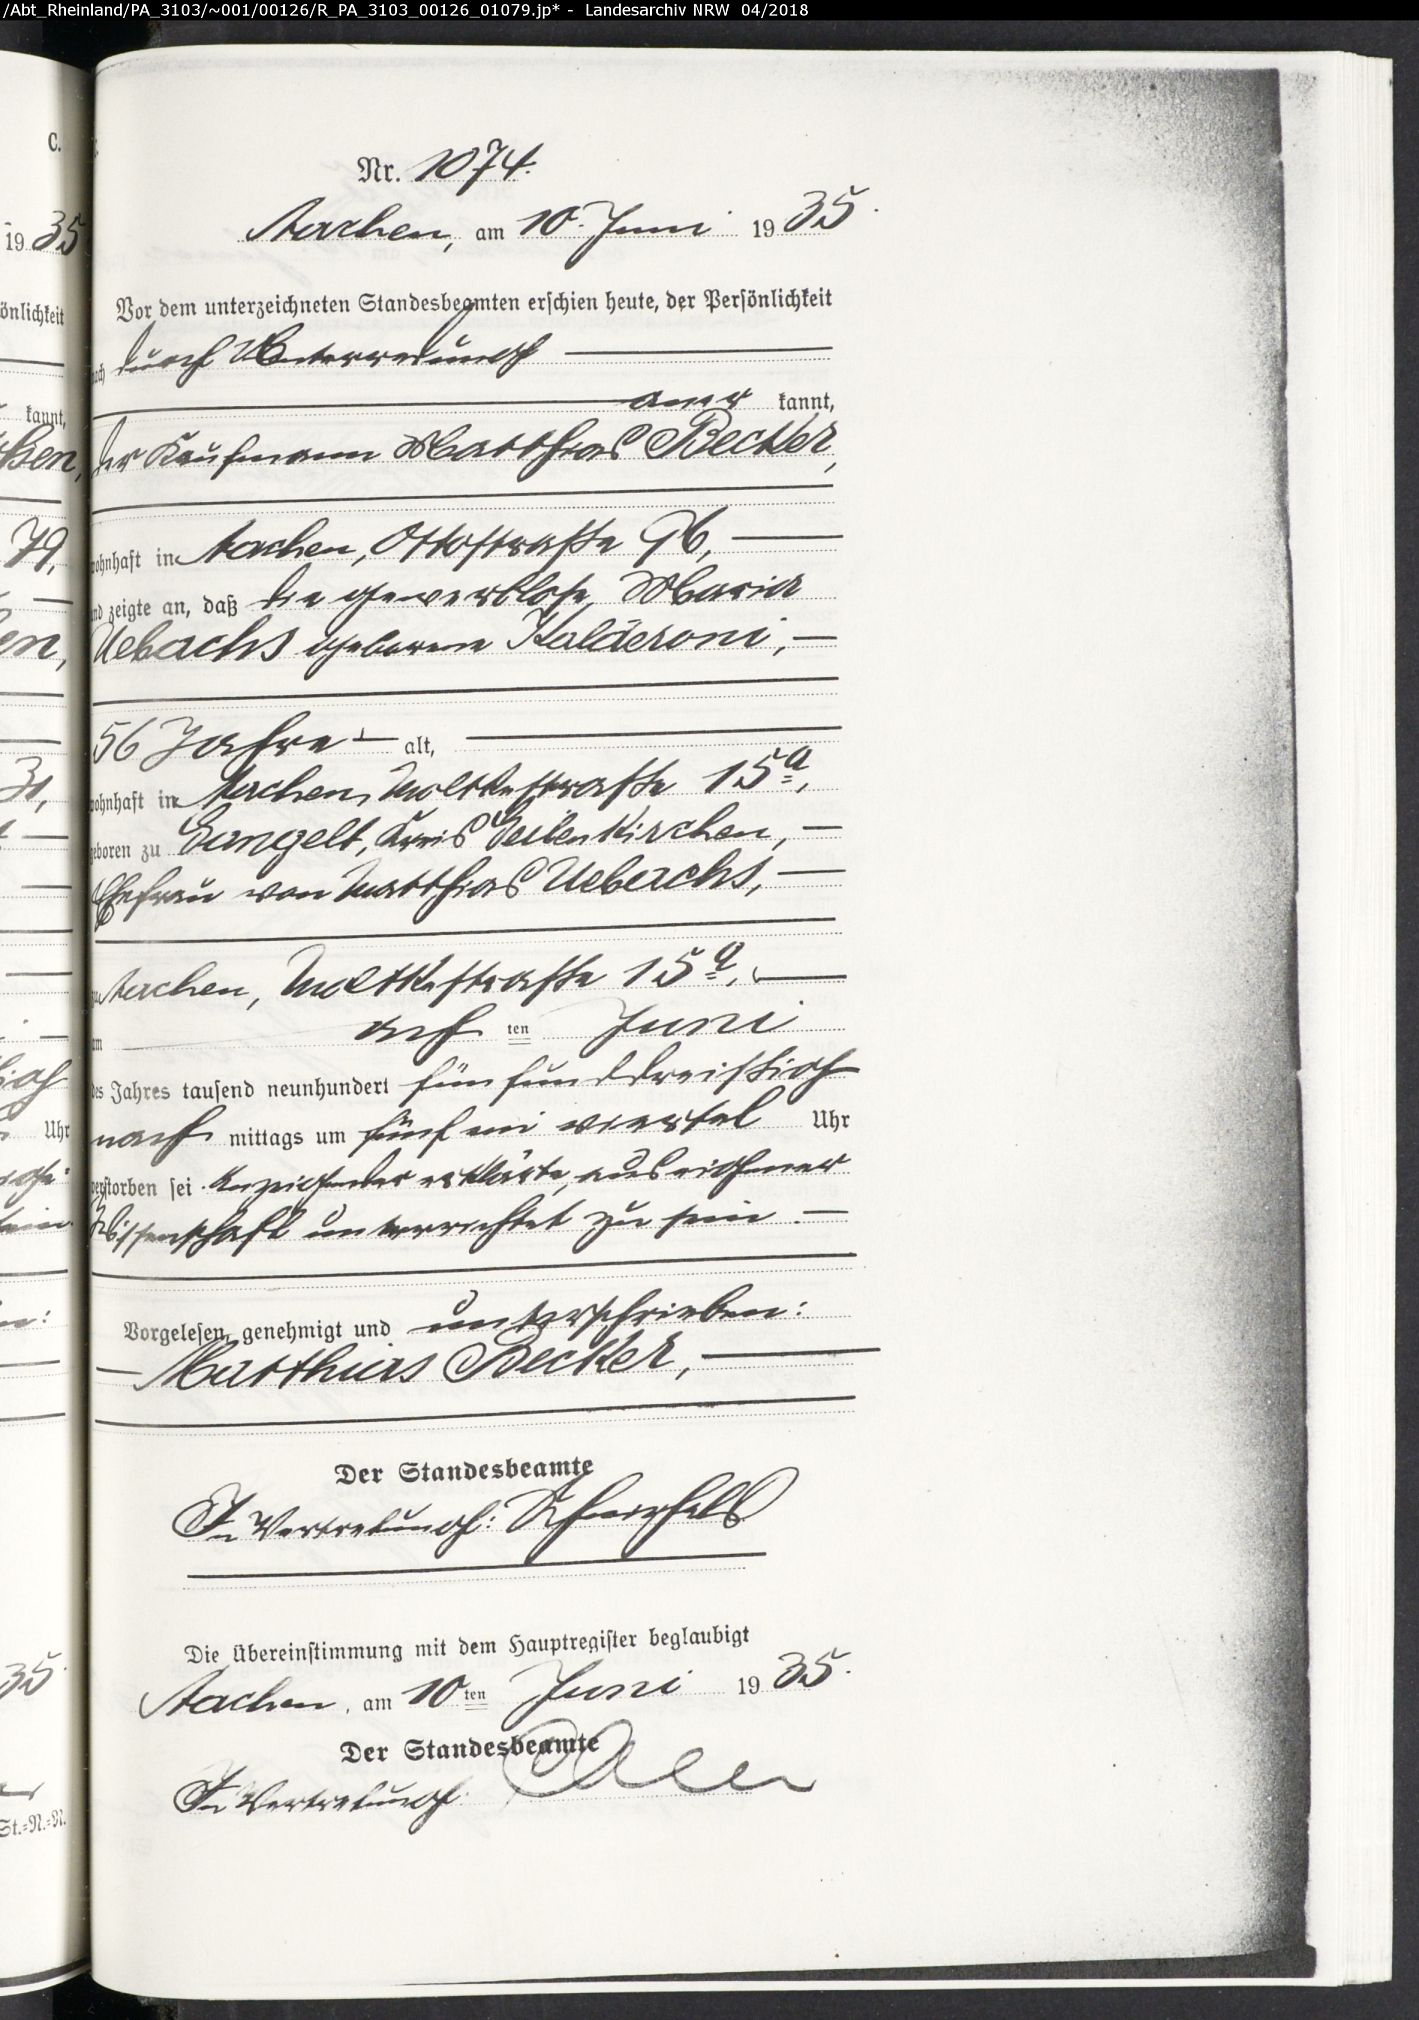 /Abt_Rheinland/PA_3103/~001/00126/R_PA_3103_00126_01079.jp* - Landesarchiv NRW 04/2018
C.
Nr. 1074.
Aachen, am 10. Juni 1935.
19 35
Vor dem unterzeichneten Standesbeamten erschien heute, der Persönlichkeit
önlichkeit
nach durch Unterredung
aner kannt,
kannt,
der Kaufmann Matthias Becker,
ken,
wohnhaft in Aachen, Ottostraße 96,
79,
und zeigte an, daß die gewerblose Maria
Uebachs geborene Kalderoni,
en,
56 Jahre alt,
wohnhaft in Aachen, Moltkestraße 15a,
31,
geboren zu Gangelt, Kreis Geilenkirchen,
Ehefrau von Matthias Uebachs,
zu Aachen, Moltkestraße 15a,
am acht ten Juni
des Jahres tausend neunhundert fünfunddreißig
nach mittags um fünf ein viertel Uhr
Uhr
verstorben sei. Anzeigender erklärte, aus eigener
Wissenschaft unterrichtet zu sein.
Vorgelesen, genehmigt und unterschrieben:
Matthias Becker,
Der Standesbeamte
In Vertretung:
Die Übereinstimmung mit dem Hauptregister beglaubigt
Aachen, am 10ten Juni 1935.
35.
Der Standesbeamte
In Vertretung:
St.=N.=N.